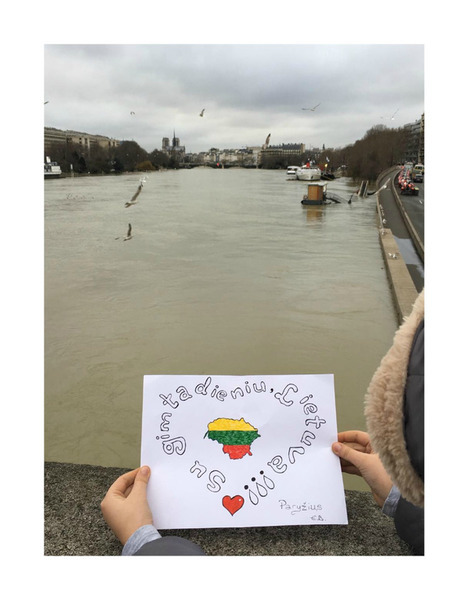 Su gimtadieniu, Lietuva!!!
Paryžius